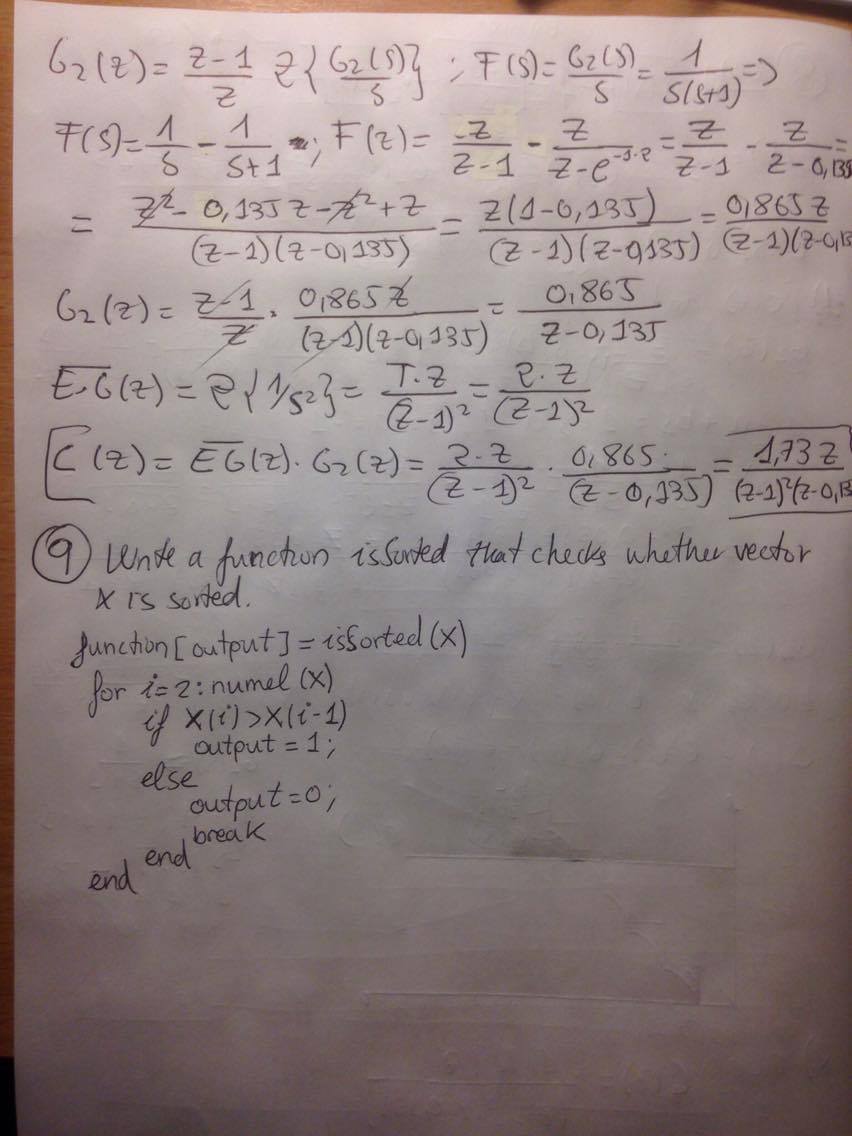 G₂(z) = (z-1)/z Z{G₂(s)/s} ; F(s) = G₂(s)/s = 1/(s(s+1)) =>
F(s) = 1/s - 1/(s+1) ; F(z) = z/(z-1) - z/(z-e^(-1·2)) = z/(z-1) - z/(z-0,135) =
= (z² - 0,135z - z² + z)/((z-1)(z-0,135)) = z(1-0,135)/((z-1)(z-0,135)) = 0,865z/((z-1)(z-0,13
G₂(z) = (z-1)/z · 0,865z/((z-1)(z-0,135)) = 0,865/(z-0,135)
EG(z) = Z{1/s²} = T·z/(z-1)² = 2·z/(z-1)²
C(z) = EG(z)·G₂(z) = 2·z/(z-1)² · 0,865/(z-0,135) = 1,73z/((z-1)²(z-0,13
9 Write a function isSorted that checks whether vector
X is sorted.
function[output]=isSorted(X)
for i=2:numel(X)
if X(i)>X(i-1)
output=1;
else
output=0;
break
end
end